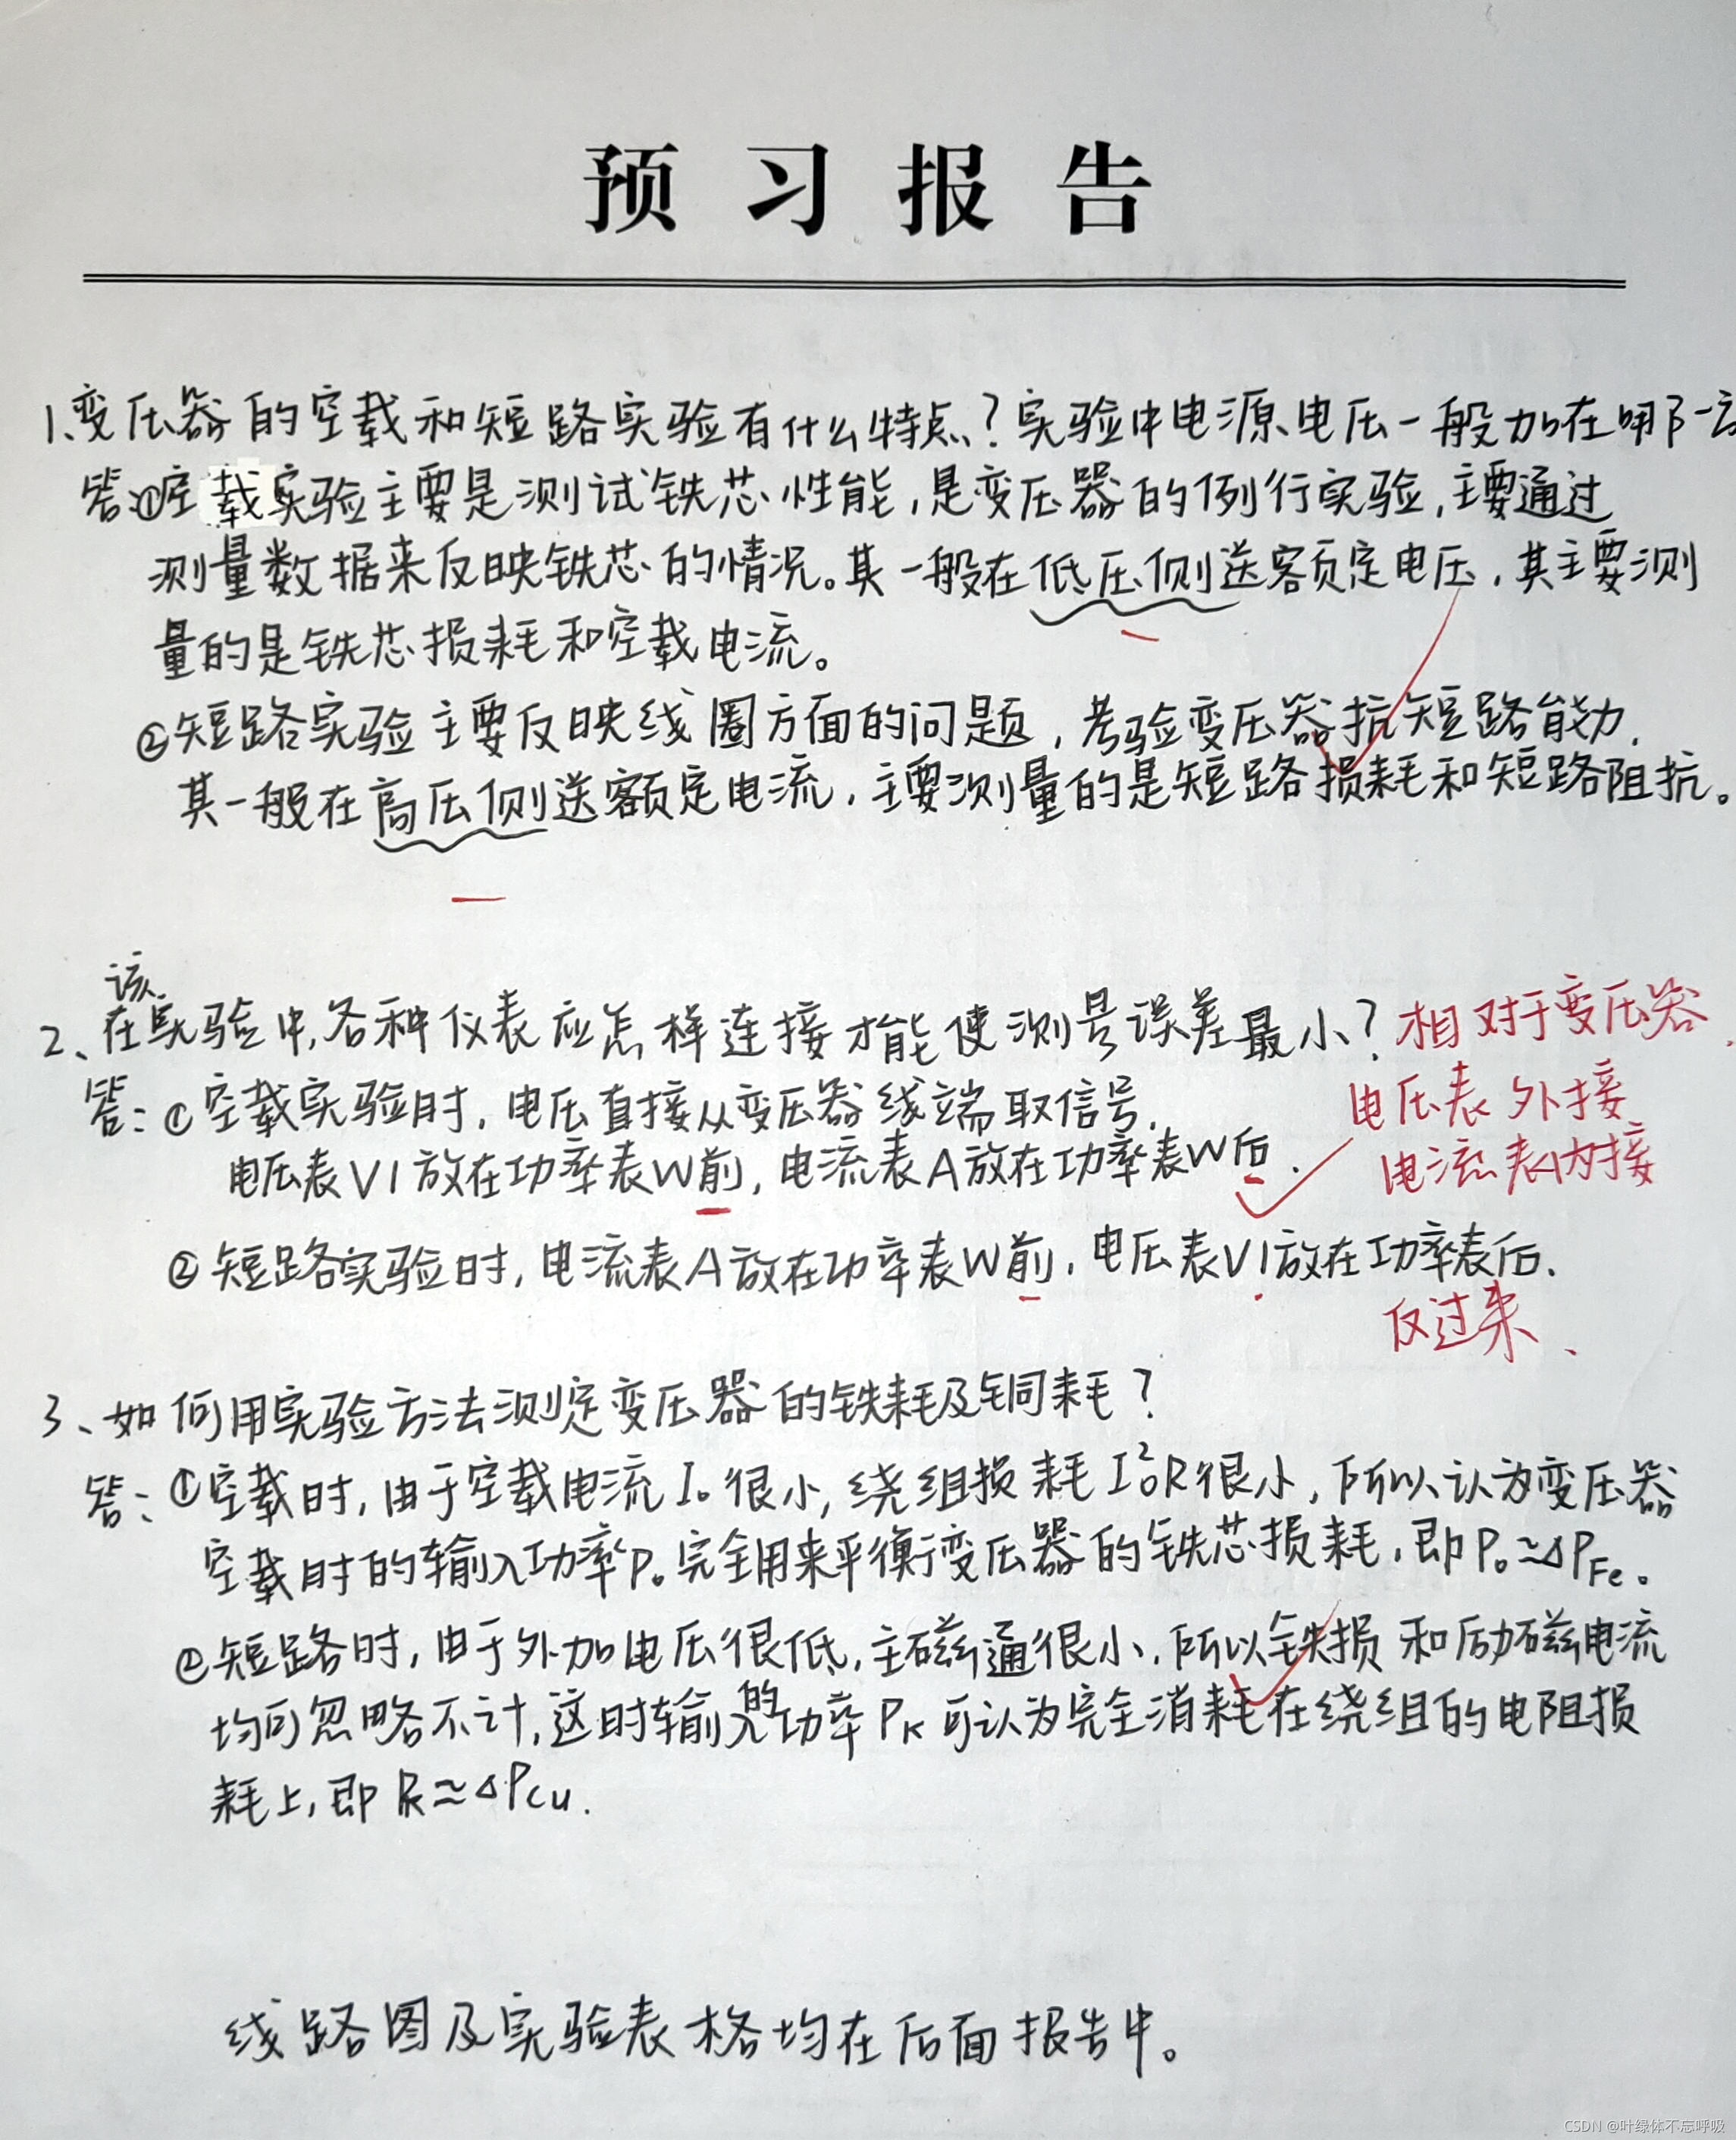 预习报告
1、变压器的空载和短路实验有什么特点？实验中电源电压一般加在哪一方
答：①空载实验主要是测试铁芯性能，是变压器的例行实验，主要通过
测量数据来反映铁芯的情况。其一般在低压侧送额定电压，其主要测
量的是铁芯损耗和空载电流。
②短路实验主要反映线圈方面的问题，考验变压器抗短路能力.
其一般在高压侧送额定电流，主要测量的是短路损耗和短路阻抗。
该
2、在实验中,各种仪表应怎样连接才能使测量误差最小？ 相对于变压器.
答：①空载实验时，电压直接从变压器线端取信号. 电压表外接
电压表V1放在功率表W前，电流表A放在功率表W后. 电流表内接
②短路实验时，电流表A放在功率表W前，电压表V1放在功率表后.
反过来、
3、如何用实验方法测定变压器的铁耗及铜耗？
答：①空载时，由于空载电流I₀很小，绕组损耗I₀²R很小，所以认为变压器
空载时的输入功率P₀完全用来平衡变压器的铁芯损耗，即P₀≈△P_Fe。
②短路时，由于外加电压很低，主磁通很小，所以铁损和励磁电流
均可忽略不计，这时输入的功率P_K可认为完全消耗在绕组的电阻损
耗上，即P_K≈△P_Cu.
线路图及实验表格均在后面报告中。
CSDN @叶绿体不忘呼吸